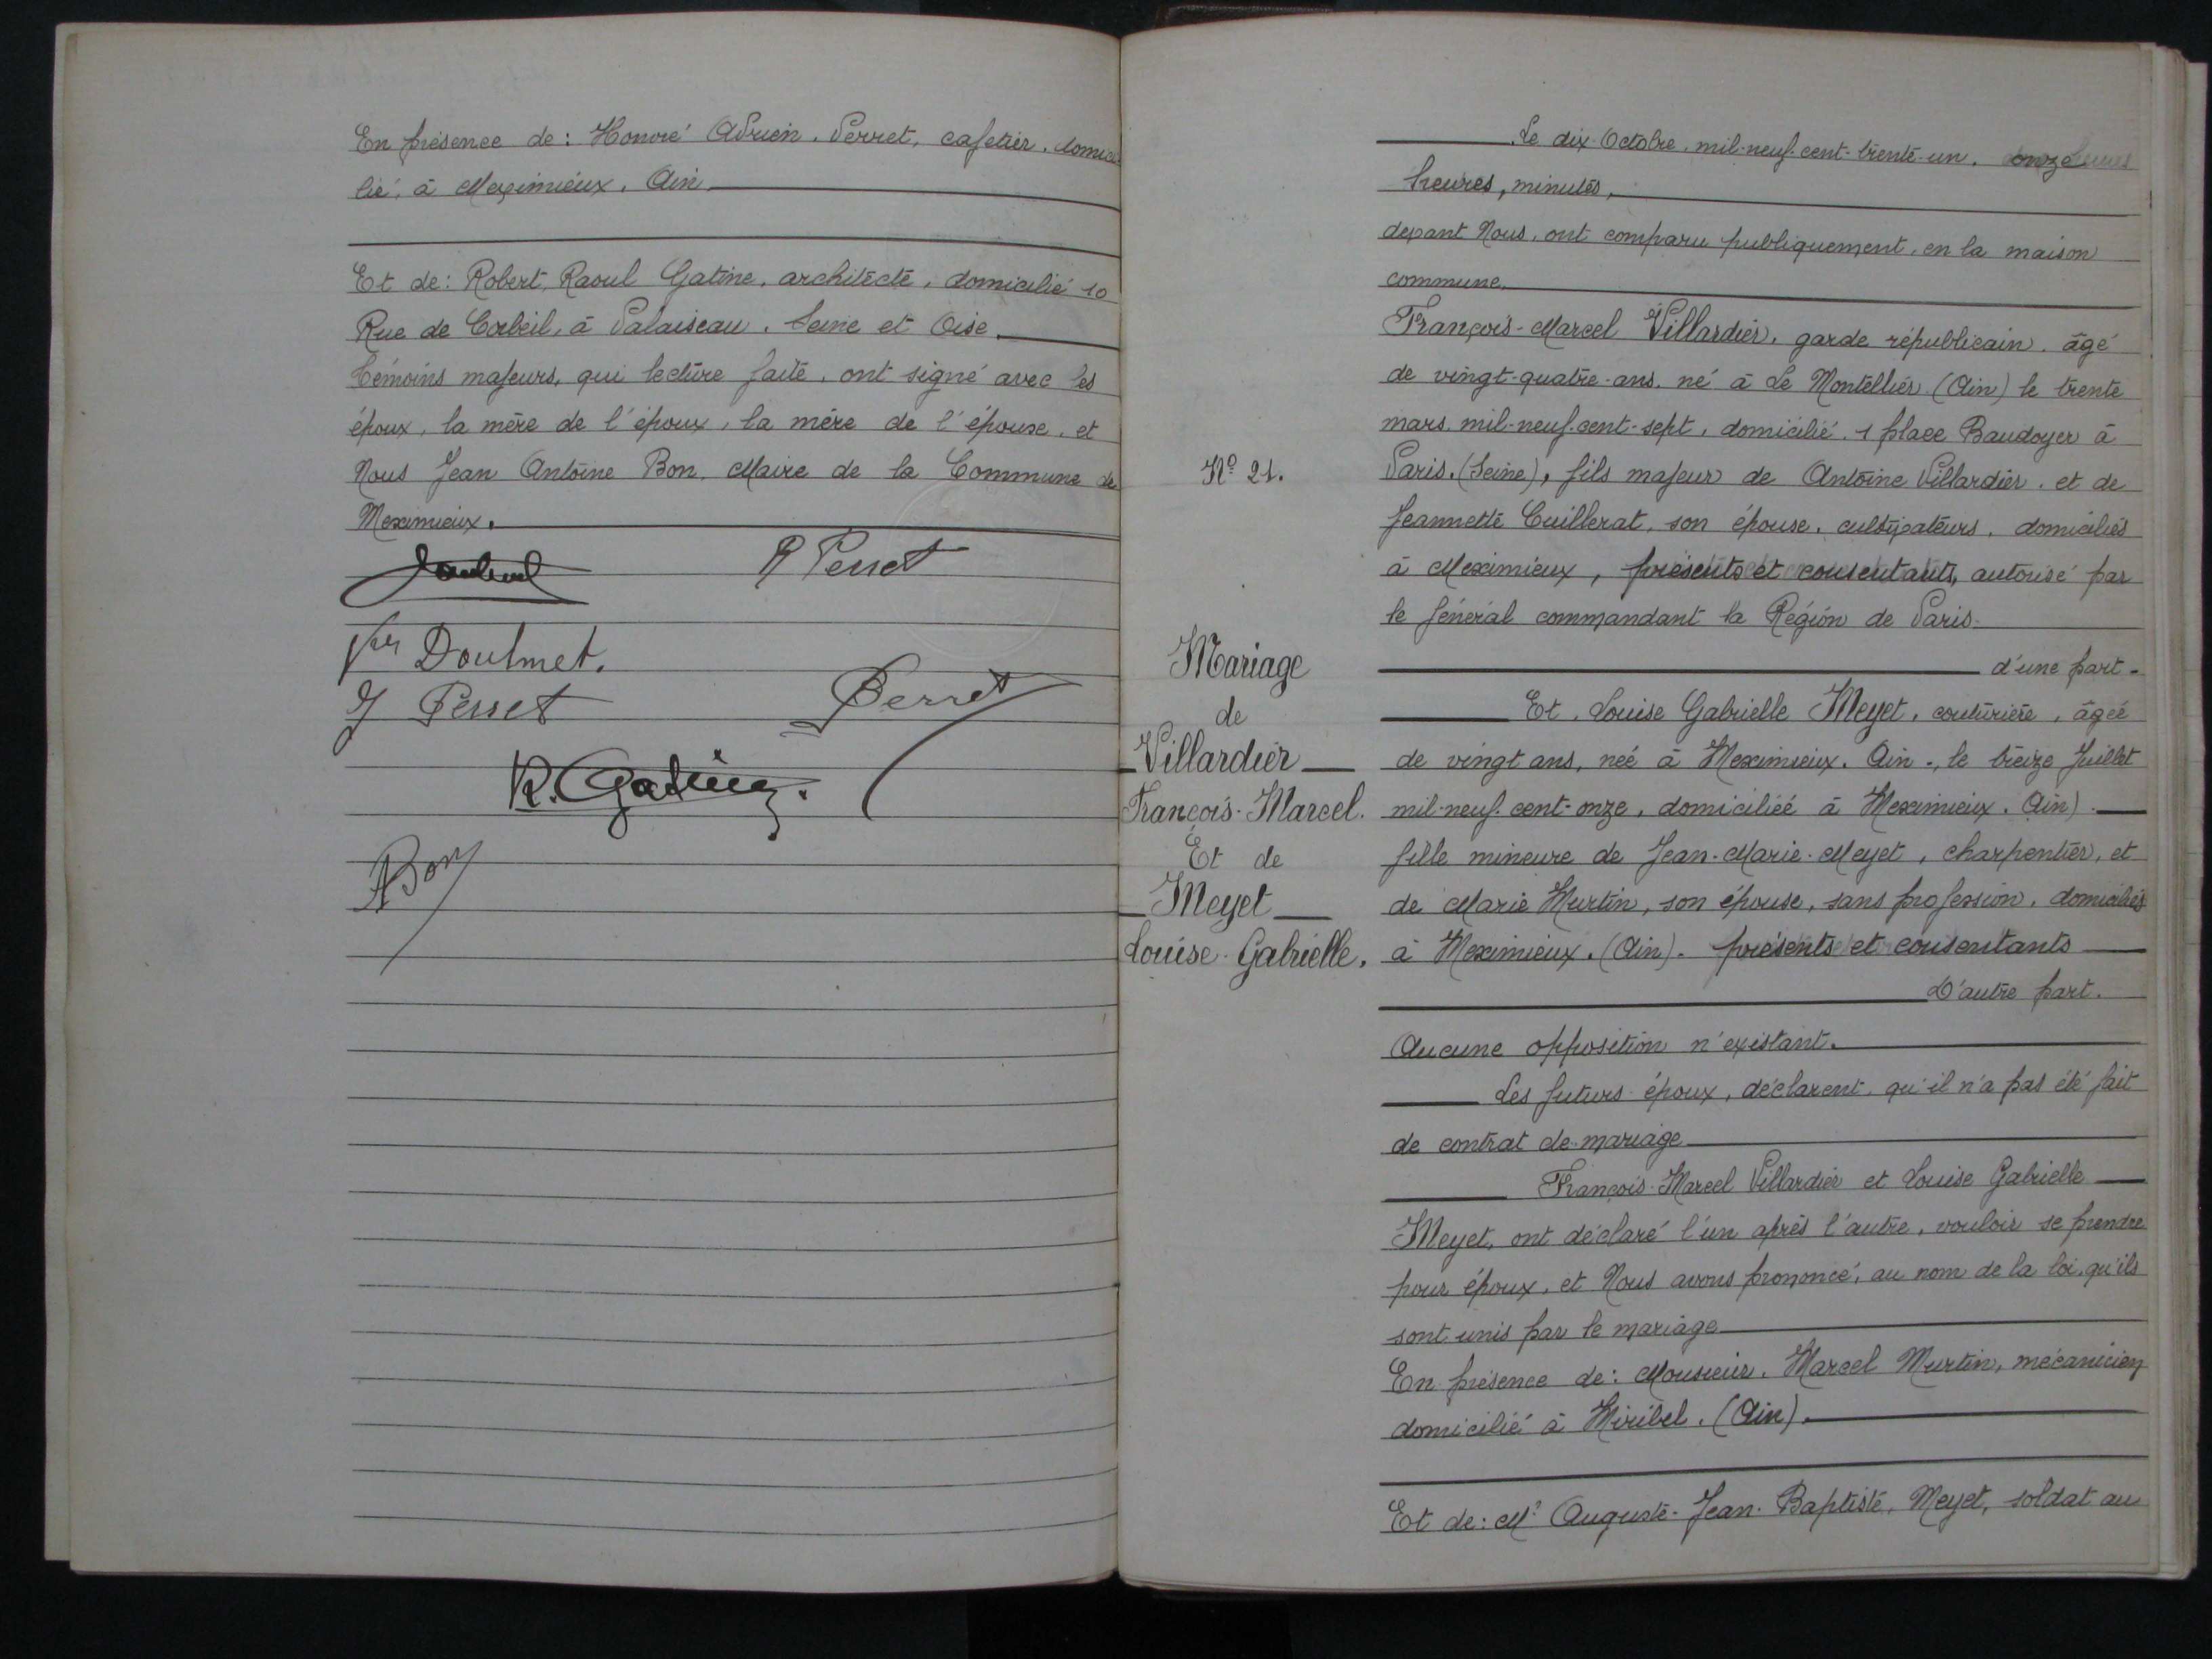 En présence de : Honoré Adrien. Perret, cafetier, domici
lié, à Meximieux. Ain
Et de : Robert, Raoul Gatine, architecte, domicilié 10
Rue de Corbeil, à Palaiseau. Seine et Oise.
témoins majeurs, qui lecture faite, ont signé avec les
époux, la mère de l'époux, la mère de l'épouse, et
Nous Jean Antoine Bon, Maire de la Commune de
Meximieux.
R Perret
Doulmet.
J Perret
Perret
R. Gatine.
ABon
N° 21.
Mariage
de
Villardier
François-Marcel.
Et de
Meyet
Louise-Gabrielle.
Le dix Octobre, mil-neuf-cent-trente-un, onze
heures, minutes,
devant Nous, ont comparu publiquement, en la maison
commune.
François-Marcel Villardier, garde républicain, âgé
de vingt-quatre-ans, né à Le Montellier (Ain) le trente
mars mil-neuf-cent-sept, domicilié 1 place Baudoyer à
Paris. (Seine), fils majeur de Antoine Villardier, et de
Jeannette Cuillerat, son épouse, cultivateurs, domiciliés
à Meximieux, présents et consentants, autorisé par
le général commandant la Région de Paris.
d'une part -
Et, Louise Gabrielle Meyet, couturière, âgée
de vingt ans, née à Meximieux. Ain -, le treize Juillet
mil-neuf-cent-onze, domiciliée à Meximieux. Ain)
fille mineure de Jean-Marie-Meyet, charpentier, et
de Marie Murtin, son épouse, sans profession, domiciliés
à Meximieux. (Ain). présents et consentants
D'autre part.
Aucune opposition n'existant.
Les futurs époux, déclarent, qu'il n'a pas été fait
de contrat de mariage
François-Marcel Villardier et Louise Gabrielle
Meyet, ont déclaré l'un après l'autre, vouloir se prendre
pour époux, et Nous avons prononcé, au nom de la loi, qu'ils
sont unis par le mariage
En présence de : Monsieur, Marcel Murtin, mécanicien
domicilié à Miribel. (Ain).
Et de : Mr Auguste-Jean-Baptiste, Meyet, soldat au